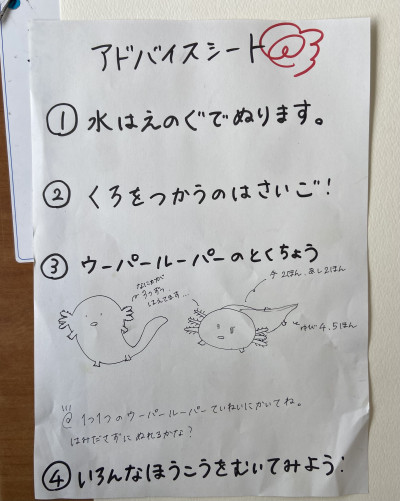 アドバイスシート
① 水はえのぐでぬります。
② くろをつかうのはさいご!
③ ウーパールーパーのとくちょう
なにかが
うっすら
はえてます…
手2ほん、あし2ほん
ゆび4,5ほん
1つ1つのウーパールーパーていねいにかいてね。
はみださずにぬれるかな?
④ いろんなほうこうをむいてみよう!